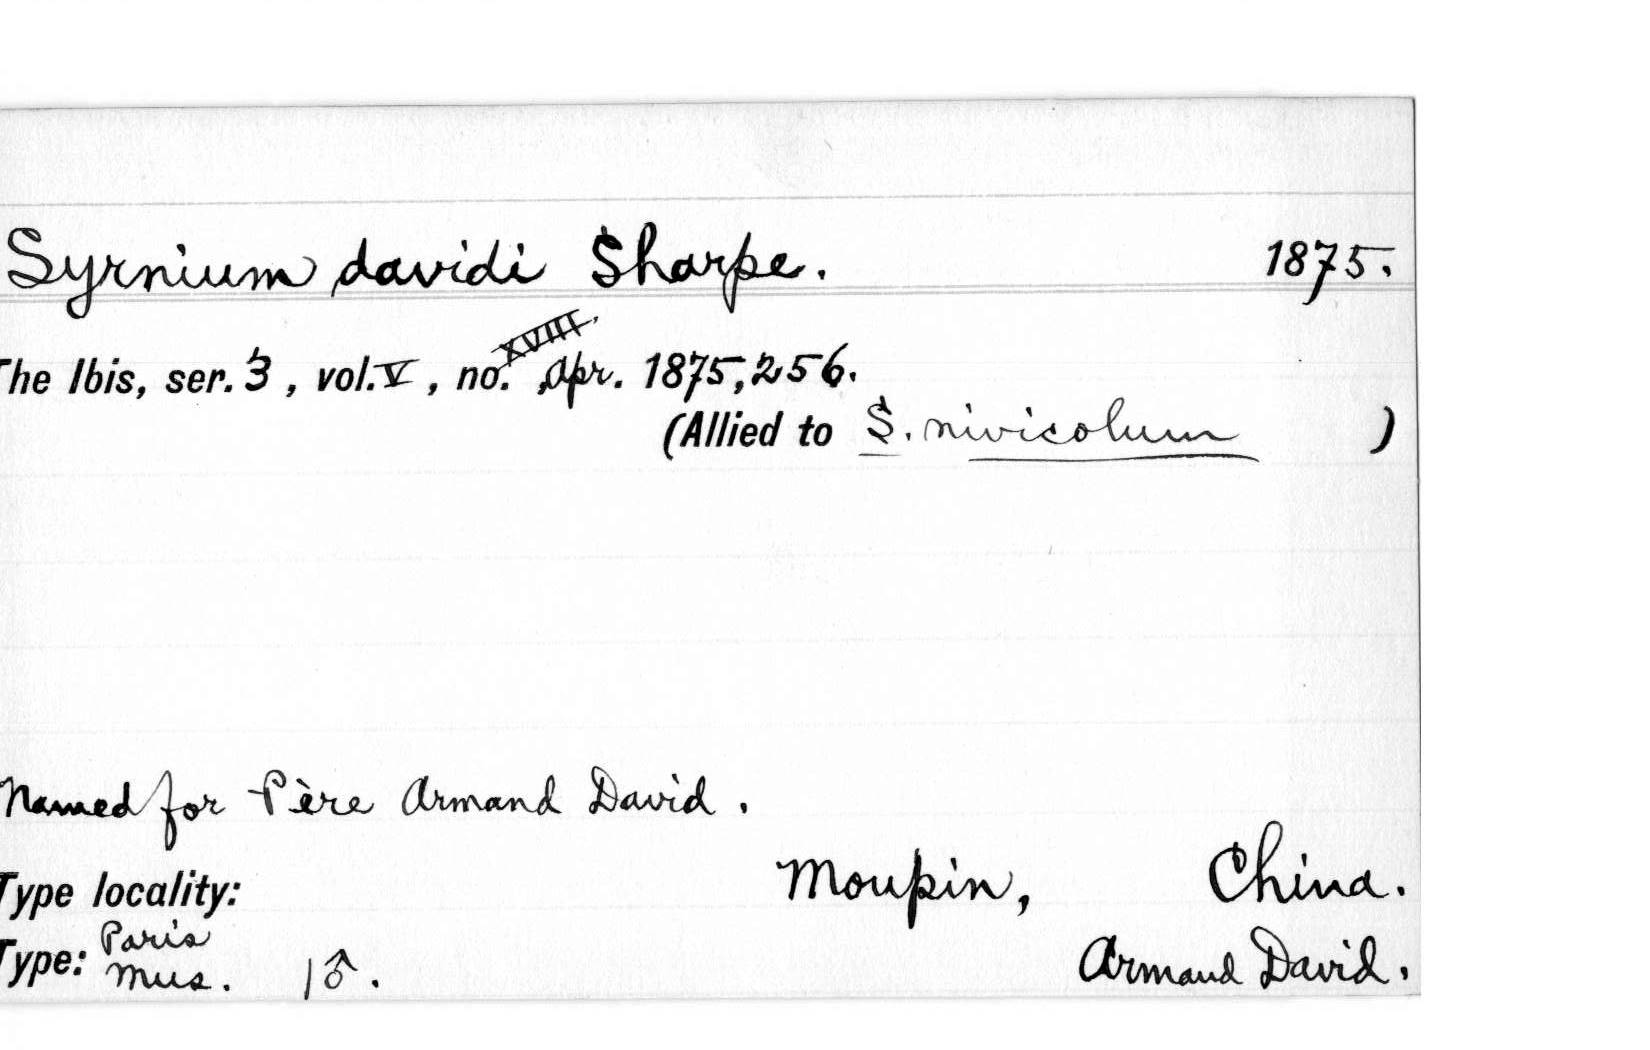 Syrnium davidi Sharpe. 1875.
The Ibis, ser. 3, vol. V, no. XVIII, Apr. 1875, 256.
(Allied to S. nivicolum )
Named for Père Armand David.
Type locality: Moupin, China.
Type: Paris Mus. 1♂. Armand David.